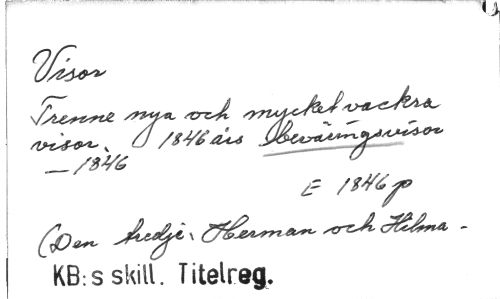 Visor
Trenne nya och mycket vackra
visor. 1846 års beväringsvisor
— 1846
E 1846 p
(Den tredje: Herman och Hilma -
KB:s skill. Titelreg.